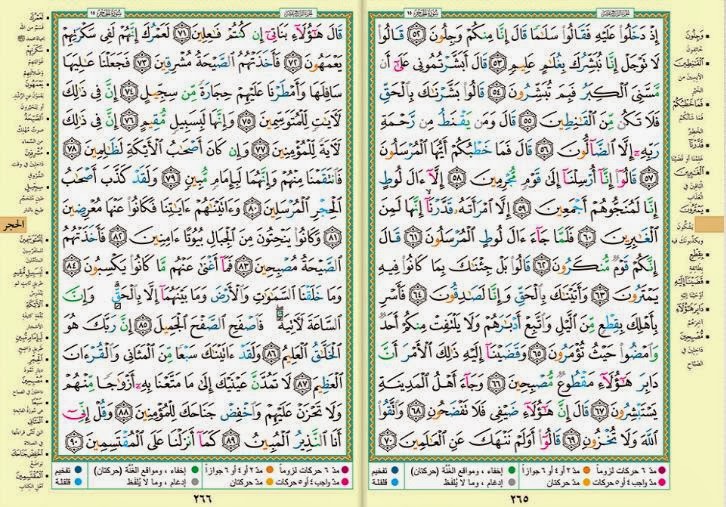 إِذْ دَخَلُوا۟ عَلَيْهِ فَقَالُوا۟ سَلَٰمًا قَالَ إِنَّا مِنكُمْ وَجِلُونَ ٥٢ قَالُوا۟
لَا تَوْجَلْ إِنَّا نُبَشِّرُكَ بِغُلَٰمٍ عَلِيمٍ ٥٣ قَالَ أَبَشَّرْتُمُونِى عَلَىٰٓ أَن
مَّسَّنِىَ ٱلْكِبَرُ فَبِمَ تُبَشِّرُونَ ٥٤ قَالُوا۟ بَشَّرْنَٰكَ بِٱلْحَقِّ
فَلَا تَكُن مِّنَ ٱلْقَٰنِطِينَ ٥٥ قَالَ وَمَن يَقْنَطُ مِن رَّحْمَةِ
رَبِّهِۦٓ إِلَّا ٱلضَّآلُّونَ ٥٦ قَالَ فَمَا خَطْبُكُمْ أَيُّهَا ٱلْمُرْسَلُونَ
٥٧ قَالُوٓا۟ إِنَّآ أُرْسِلْنَآ إِلَىٰ قَوْمٍ مُّجْرِمِينَ ٥٨ إِلَّآ ءَالَ لُوطٍ
إِنَّا لَمُنَجُّوهُمْ أَجْمَعِينَ ٥٩ إِلَّا ٱمْرَأَتَهُۥ قَدَّرْنَآ إِنَّهَا لَمِنَ
ٱلْغَٰبِرِينَ ٦٠ فَلَمَّا جَآءَ ءَالَ لُوطٍ ٱلْمُرْسَلُونَ ٦١ قَالَ
إِنَّكُمْ قَوْمٌ مُّنكَرُونَ ٦٢ قَالُوا۟ بَلْ جِئْنَٰكَ بِمَا كَانُوا۟ فِيهِ
يَمْتَرُونَ ٦٣ وَأَتَيْنَٰكَ بِٱلْحَقِّ وَإِنَّا لَصَٰدِقُونَ ٦٤ فَأَسْرِ
بِأَهْلِكَ بِقِطْعٍ مِّنَ ٱلَّيْلِ وَٱتَّبِعْ أَدْبَٰرَهُمْ وَلَا يَلْتَفِتْ مِنكُمْ أَحَدٌ
وَٱمْضُوا۟ حَيْثُ تُؤْمَرُونَ ٦٥ وَقَضَيْنَآ إِلَيْهِ ذَٰلِكَ ٱلْأَمْرَ أَنَّ
دَابِرَ هَٰٓؤُلَآءِ مَقْطُوعٌ مُّصْبِحِينَ ٦٦ وَجَآءَ أَهْلُ ٱلْمَدِينَةِ
يَسْتَبْشِرُونَ ٦٧ قَالَ إِنَّ هَٰٓؤُلَآءِ ضَيْفِى فَلَا تَفْضَحُونِ ٦٨ وَٱتَّقُوا۟
ٱللَّهَ وَلَا تُخْزُونِ ٦٩ قَالُوٓا۟ أَوَلَمْ نَنْهَكَ عَنِ ٱلْعَٰلَمِينَ ٧٠
مدّ ٦ حركات لزوماً مدّ ٢ أو ٤ أو ٦ جوازاً إخفاء، ومواقع الغُنَّة (حركتان) تفخيم
مدّ واجب ٤ أو ٥ حركات مدّ حركتان إدغام، وما لا يُلفَظ قلقلة
٢٦٥
قَالَ هَٰٓؤُلَآءِ بَنَاتِىٓ إِن كُنتُمْ فَٰعِلِينَ ٧١ لَعَمْرُكَ إِنَّهُمْ لَفِى سَكْرَتِهِمْ
يَعْمَهُونَ ٧٢ فَأَخَذَتْهُمُ ٱلصَّيْحَةُ مُشْرِقِينَ ٧٣ فَجَعَلْنَا عَٰلِيَهَا
سَافِلَهَا وَأَمْطَرْنَا عَلَيْهِمْ حِجَارَةً مِّن سِجِّيلٍ ٧٤ إِنَّ فِى ذَٰلِكَ
لَءَايَٰتٍ لِّلْمُتَوَسِّمِينَ ٧٥ وَإِنَّهَا لَبِسَبِيلٍ مُّقِيمٍ ٧٦ إِنَّ فِى ذَٰلِكَ
لَءَايَةً لِّلْمُؤْمِنِينَ ٧٧ وَإِن كَانَ أَصْحَٰبُ ٱلْأَيْكَةِ لَظَٰلِمِينَ ٧٨
فَٱنتَقَمْنَا مِنْهُمْ وَإِنَّهُمَا لَبِإِمَامٍ مُّبِينٍ ٧٩ وَلَقَدْ كَذَّبَ أَصْحَٰبُ
ٱلْحِجْرِ ٱلْمُرْسَلِينَ ٨٠ وَءَاتَيْنَٰهُمْ ءَايَٰتِنَا فَكَانُوا۟ عَنْهَا مُعْرِضِينَ
٨١ وَكَانُوا۟ يَنْحِتُونَ مِنَ ٱلْجِبَالِ بُيُوتًا ءَامِنِينَ ٨٢ فَأَخَذَتْهُمُ
ٱلصَّيْحَةُ مُصْبِحِينَ ٨٣ فَمَآ أَغْنَىٰ عَنْهُم مَّا كَانُوا۟ يَكْسِبُونَ ٨٤
وَمَا خَلَقْنَا ٱلسَّمَٰوَٰتِ وَٱلْأَرْضَ وَمَا بَيْنَهُمَآ إِلَّا بِٱلْحَقِّ وَإِنَّ
ٱلسَّاعَةَ لَءَاتِيَةٌ فَٱصْفَحِ ٱلصَّفْحَ ٱلْجَمِيلَ ٨٥ إِنَّ رَبَّكَ هُوَ
ٱلْخَلَّٰقُ ٱلْعَلِيمُ ٨٦ وَلَقَدْ ءَاتَيْنَٰكَ سَبْعًا مِّنَ ٱلْمَثَانِى وَٱلْقُرْءَانَ
ٱلْعَظِيمَ ٨٧ لَا تَمُدَّنَّ عَيْنَيْكَ إِلَىٰ مَا مَتَّعْنَا بِهِۦٓ أَزْوَٰجًا مِّنْهُمْ
وَلَا تَحْزَنْ عَلَيْهِمْ وَٱخْفِضْ جَنَاحَكَ لِلْمُؤْمِنِينَ ٨٨ وَقُلْ إِنِّىٓ
أَنَا ٱلنَّذِيرُ ٱلْمُبِينُ ٨٩ كَمَآ أَنزَلْنَا عَلَى ٱلْمُقْتَسِمِينَ ٩٠
مدّ ٦ حركات لزوماً مدّ ٢ أو ٤ أو ٦ جوازاً إخفاء، ومواقع الغُنَّة (حركتان) تفخيم
مدّ واجب ٤ أو ٥ حركات مدّ حركتان إدغام، وما لا يُلفَظ قلقلة
٢٦٦
الحجر